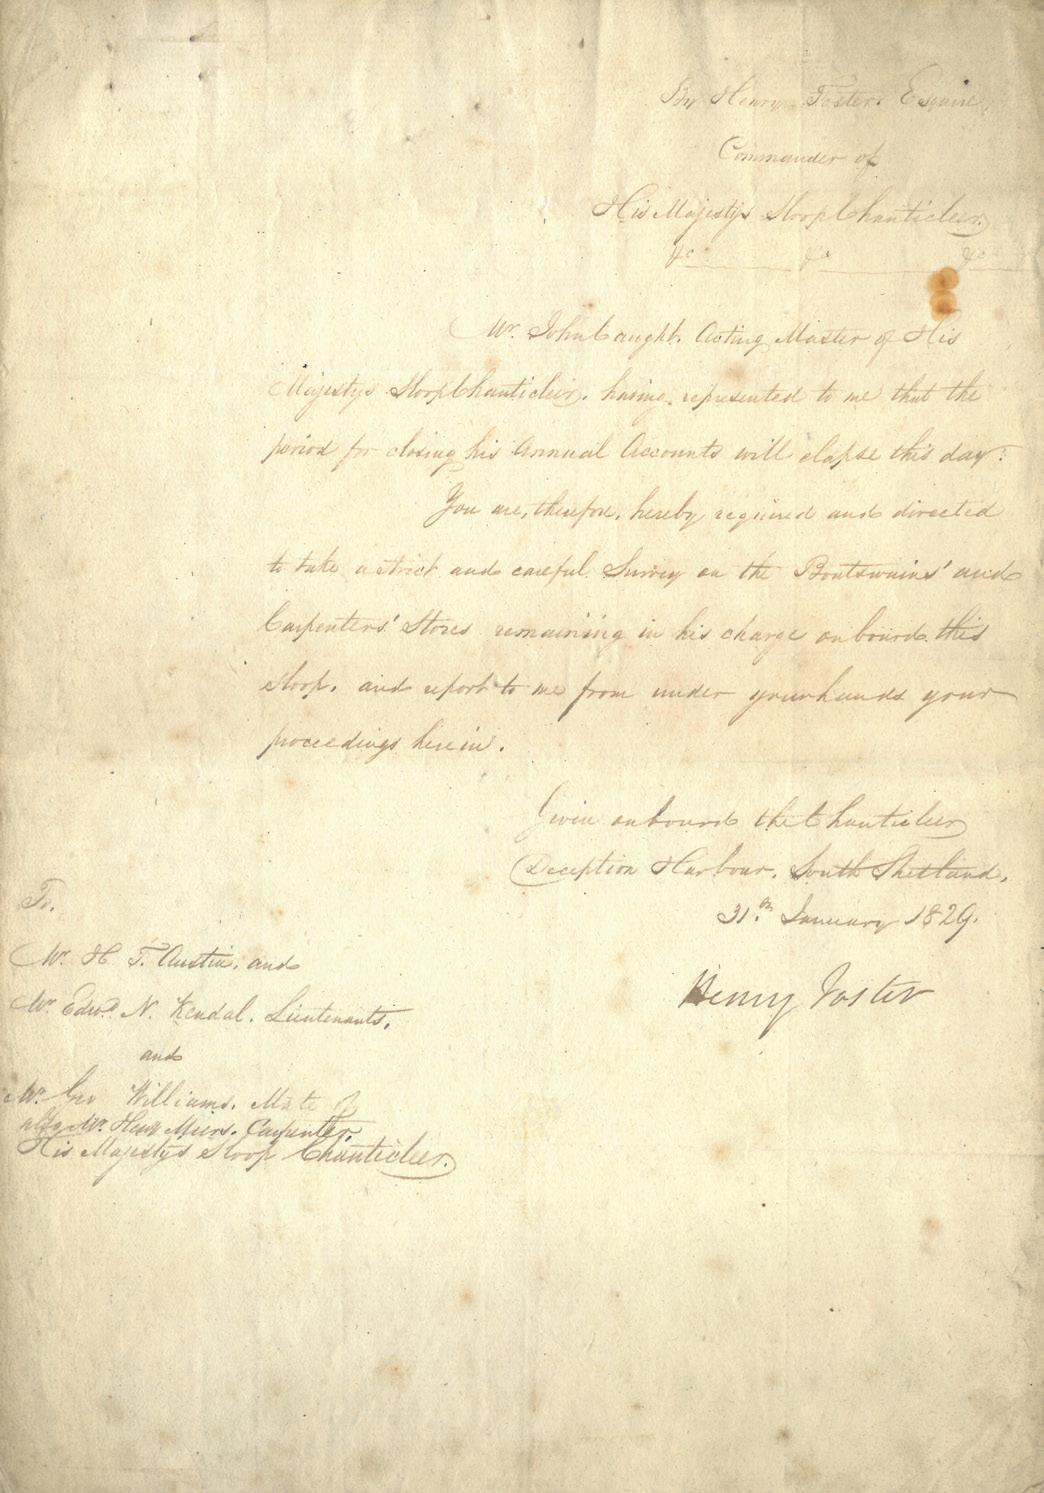 By Henry Foster, Esquire,
Commander of
His Majesty's Sloop Chanticleer.
&c &c &c
Mr. John Caught, Acting Master of His
Majesty's Sloop Chanticleer, having represented to me that the
period for closing his Annual Accounts will elapse this day:
You are, therefore, hereby required and directed
to take a strict and careful Survey on the Boatswains' and
Carpenters' Stores remaining in his charge on board this
Sloop, and report to me from under your hands your
proceedings herein.
Given on board the Chanticleer
Deception Harbour, South Shetland,
31st January 1829.
Henry Foster
To,
Mr. H. T. Austin, and
Mr. Edwd. N. Kendal, Lieutenants,
and
Mr. Geo Williams, Mate of
also Mr. Carpenter,
His Majesty's Sloop Chanticleer.